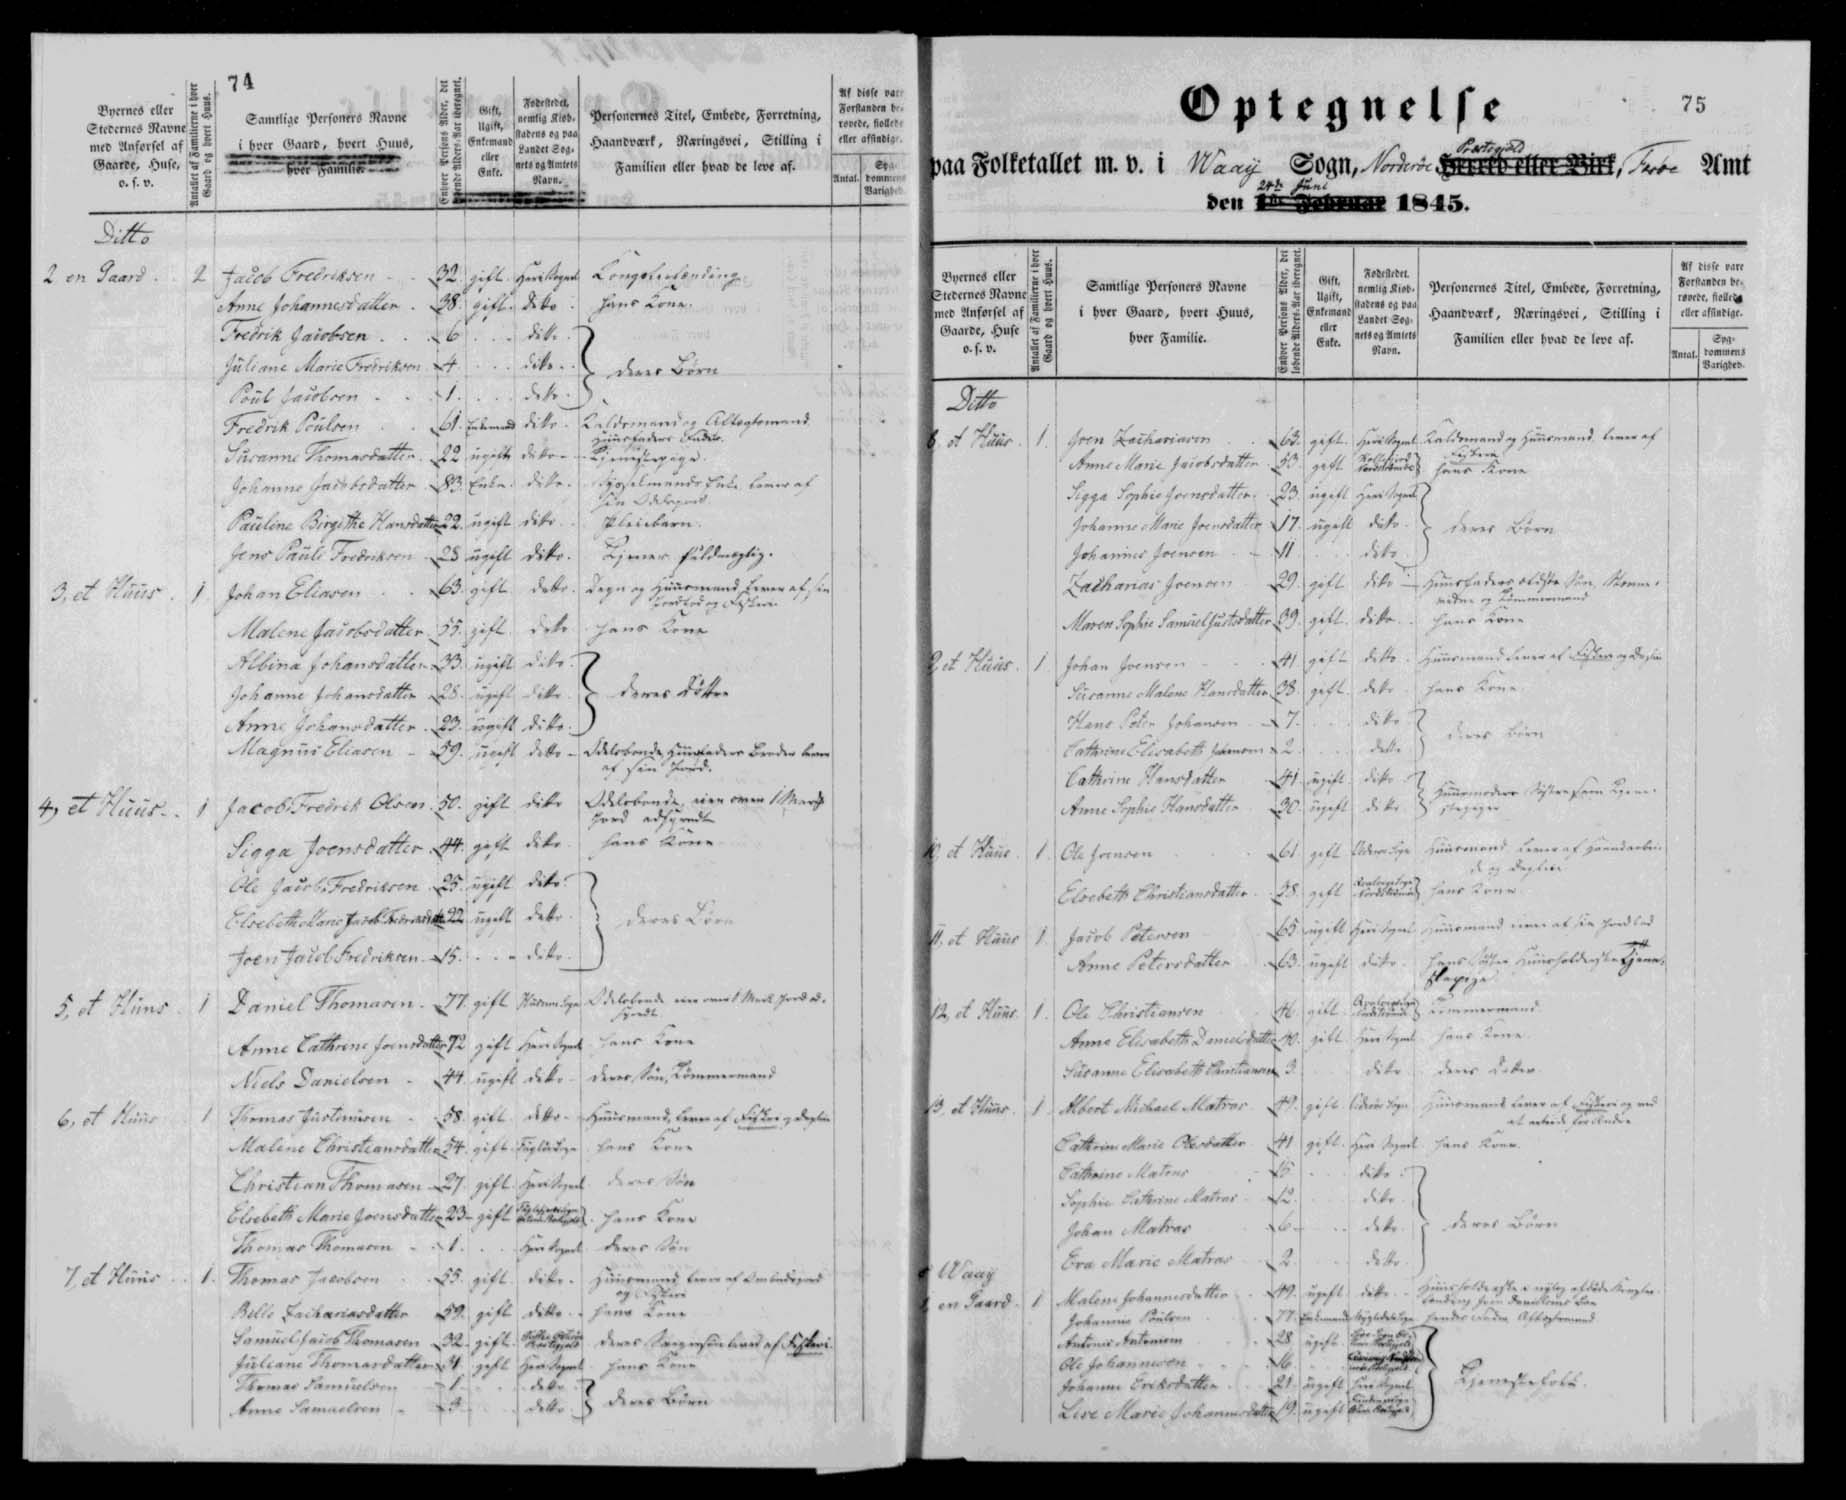 74
Byernes eller Stedernes Navne med Anførsel af Gaarde, Huse, o. s. v.
Antallet af Familierne i hver Gaard og hvert Huus.
Samtlige Personers Navne i hver Gaard, hvert Huus, hver Familie.
Enhver Persons Alder, det løbende Alders-Aar iberegnet.
Gift, Ugift, Enkemand eller Enke.
Fødestedet, nemlig Kiøbstadens og paa Landet Sognets og Amtets Navn.
Personernes Titel, Embede, Forretning, Haandværk, Næringsvei, Stilling i Familien eller hvad de leve af.
Af disse vare Forstanden berøvede, fiollede eller afsindige.
Antal.
Sygdommens Varighed.
Ditto
2 en Gaard . 2 Jacob Fredriksen 32. gift. Heri Sognet Kongsfæstending
Anne Johannesdatter . 38. gift. ditto . hans Kone.
Fredrik Jacobsen . 6 ditto
Juliane Marie Fredriksen 4 ditto deres Børn
Poul Jacobsen 1. ditto
Fredrik Poulsen 61. Enkemand ditto . Kaldsmand og Aftægtsmand Huusfaders Fader
Susanne Thomasdatter . 22 ugift ditto Tjenestepige
Johanne Jacobsdatter 83. Enke. ditto. Enke lever af sin
Pauline Birgithe Hansdatter 22. ugift ditto . Pleiebarn.
Jens Pauli Fredriksen 28 ugift ditto .
3, et Huus . 1 Johan Eliasen 63. gift. ditto . Degn og Huusmand lever af sin Jordlod og Fiskeri
Malene Jacobsdatter 55. gift. ditto hans Kone
Albina Johansdatter 33. ugift ditto.
Johanne Johansdatter 28. ugift ditto deres Døttre
Anne Johansdatter 23. ugift ditto.
Magnus Eliasen 59. ugift ditto Odelsbonde, Huusfaders Broder lever af sin Jord.
4, et Huus . 1 Jacob Fredrik Olsen 50. gift ditto Odelsbonde, eier oven 1 Mark Jord adspredt
Sigga Joensdatter 44. gift ditto hans Kone
Ole Jacob Fredriksen 25. ugift ditto.
Elsebeth Marie Jacob Fredriksdatter 22 ugift ditto deres Børn
Joen Jacob Fredriksen 15. ditto
5, et Huus . 1 Daniel Thomasen . 77. gift Odelsbonde eier oven 1 Mark Jord adspredt
Anne Cathrine Joensdatter 72 gift Heri Sognet hans Kone
Niels Danielsen 44. ugift ditto deres Søn, Tømmermand
6, et Huus 1 Thomas Justinusen 58. gift. ditto Huusmand, lever af Fiskeri og Dagleie
Malene Christiansdatter 54. gift. hans Kone
Christian Thomasen 27. gift. Heri Sognet deres Søn
Elsebeth Marie Joensdatter 23 gift hans Kone
Thomas Thomasen 1. Heri Sognet deres Søn
7, et Huus . 1. Thomas Jacobsen 55. gift. ditto . Huusmand, lever af og Fiskeri
Bille Zachariasdatter 59. gift ditto hans Kone
Samuel Jacob Thomasen 32. gift. deres lever af Fiskeri
Juliane Thomasdatter 31 gift Heri Sognet . hans Kone
Thomas Samuelsen 1 ditto
Anne Samuelsen 3 ditto deres Børn
75
Optegnelse
paa Folketallet m. v. i Waaij Sogn, Norderøe Præstegjeld Herred eller Birk, Færøe Amt
den 24de Juni 1ste Februar 1845.
Byernes eller Stedernes Navne med Anførsel af Gaarde, Huse o. s. v.
Antallet af Familierne i hver Gaard og hvert Huus.
Samtlige Personers Navne i hver Gaard, hvert Huus, hver Familie.
Enhver Persons Alder, det løbende Alders-Aar iberegnet.
Gift, Ugift, Enkemand eller Enke.
Fødestedet, nemlig Kiøbstadens og paa Landet Sognets og Amtets Navn.
Personernes Titel, Embede, Forretning, Haandværk, Næringsvei, Stilling i Familien eller hvad de leve af.
Af disse vare Forstanden berøvede, fiollede eller afsindige.
Antal.
Sygdommens Varighed.
Ditto
8, et Huus . 1. Joen Zachariasen 63. gift. Heri Sognet Kaldsmand og Huusmand, lever af Fiskeri
Anne Marie Jacobsdatter 53. gift hans Kone
Sigga Sophie Joensdatter. 23. ugift Heri Sognet
Johanne Marie Joensdatter 17. ugift ditto deres Børn
Johannes Joensen 11 ditto
Zacharias Joensen 29. gift. ditto Huusfaders ældste Søn, og Tømmermand
Maren Sophie Samuel Justsdatter 39. gift. ditto hans Kone
9, et Huus . 1. Johan Joensen 41 gift ditto Huusmand lever af Fiskeri og Dagleie
Susanne Malene Hansdatter 38. gift. ditto hans Kone
Hans Peter Johansen 7. ditto
Cathrine Elisabeth Johansen 2. ditto deres Børn
Cathrine Hansdatter 41. ugift. ditto
Anne Sophie Hansdatter 30. ugift ditto Huusmoders Søstre, som Tjenestepiger
10, et Huus . 1. Ole Joensen 61. gift Huusmand lever af Haandarbeide og Dagleie
Elsebeth Christiansdatter 58. gift hans Kone
11, et Huus 1. Jacob Petersen 65 ugift Heri Sognet Huusmand lever af sin Jordlod
Anne Petersdatter 63. ugift ditto hans Søster Huusholderske Tjenestepige
12, et Huus. 1. Ole Christiansen 46. gift Tømmermand.
Anne Elisabeth Danielsdatter 40. gift Heri Sognet hans Kone.
Susanne Elisabeth Christiansen 3. ditto deres Datter
13, et Huus . 1 Albert Michael Matras 49. gift Huusmand lever af Fiskeri og ved at arbeide for Andre
Cathrine Marie Olesdatter 41 gift. Heri Sognet hans Kone.
Cathrine Matras 15 ditto
Sophie Cathrine Matras 12. ditto
Johan Matras 6 ditto deres Børn
Eva Marie Matras 2. ditto
Waaij
1, en Gaard . 1 Malene Johannesdatter 49. ugift ditto
Johannes Poulsen 77. Enkemand hendes Fader Aftægtsmand
Antonis Antonisen 28 ugift
Ole Johannesen 16.
Johanne Eriksdatter 21. ugift Heri Sognet Tjenestefolk.
Lise Marie Johannesdatter 19. ugift